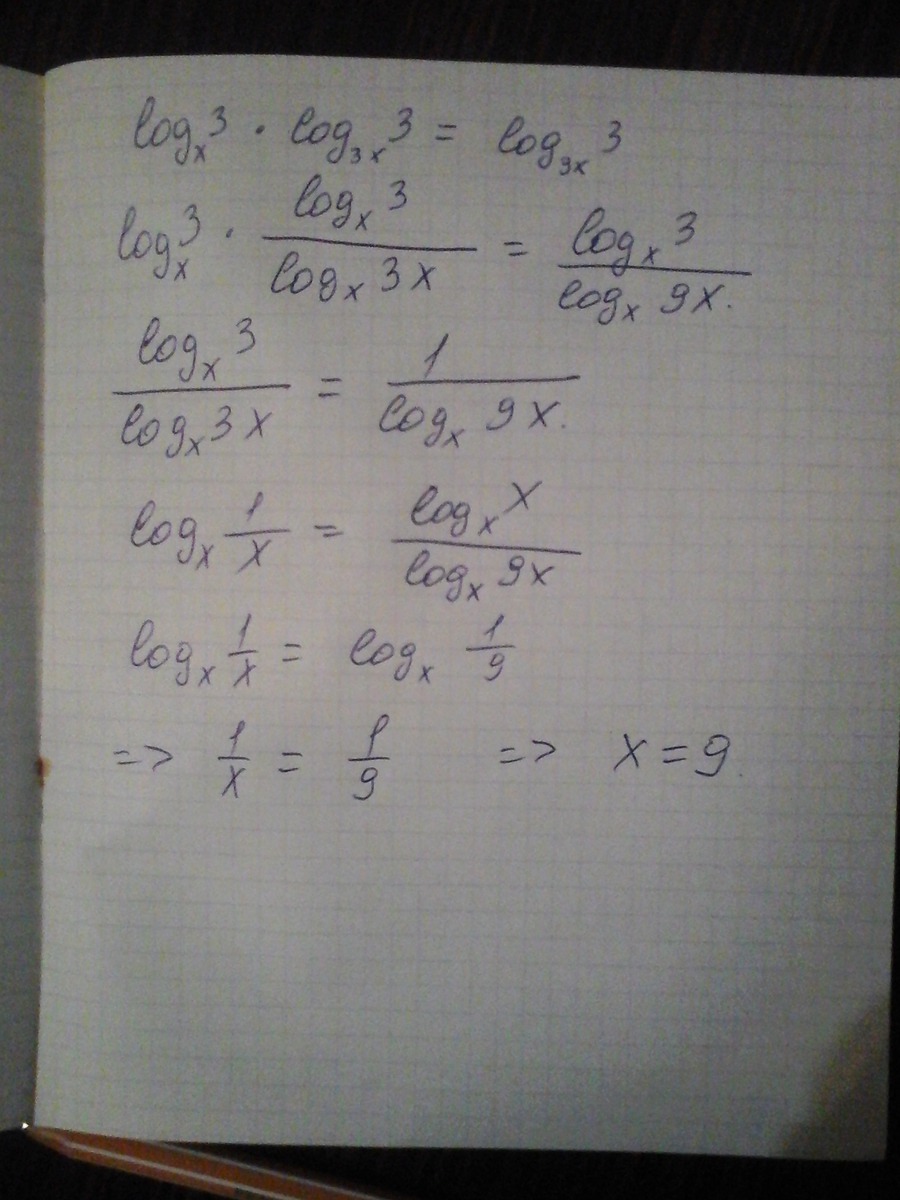 logₓ3 · log₃ₓ3 = log₃ₓ3
logₓ3 · logₓ3 / logₓ3x = logₓ3 / logₓ9x.
logₓ3 / logₓ3x = 1 / logₓ9x.
logₓ 1/x = logₓx / logₓ9x
logₓ 1/x = logₓ 1/9
=> 1/x = 1/9 => x = 9.